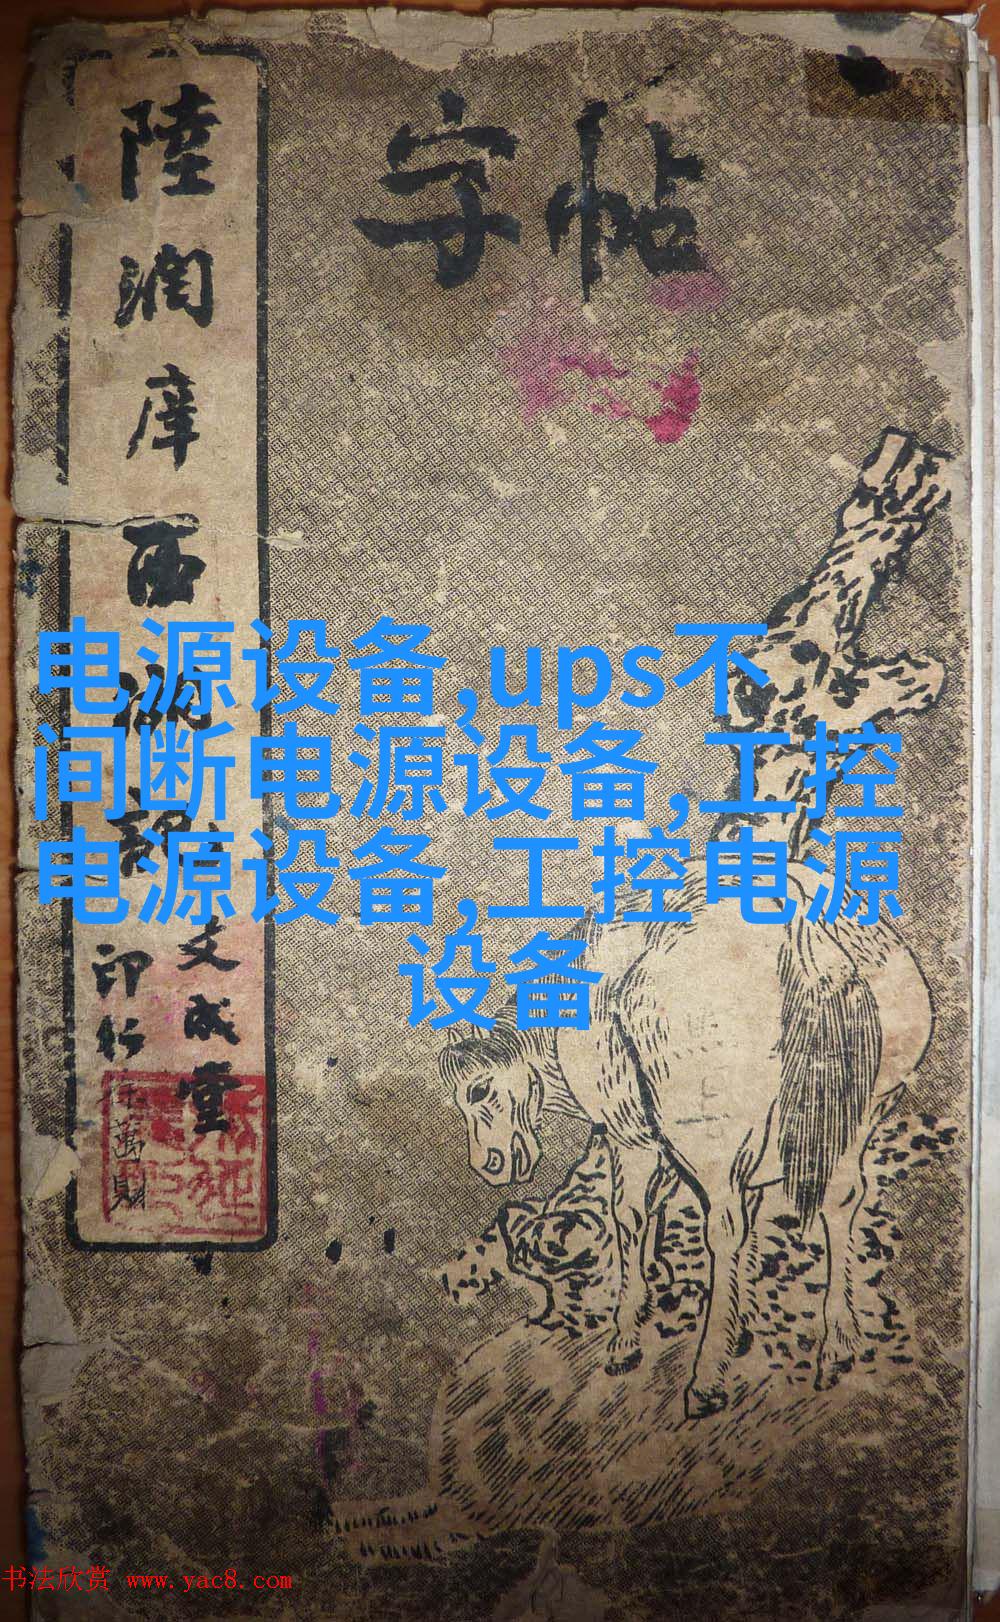 字帖
陸潤庠西湖記
文成堂
印行
徐萬財
电源设备,ups不
间断电源设备,工控
电源设备,工控电源
设备
书法欣赏 www.yac8.com